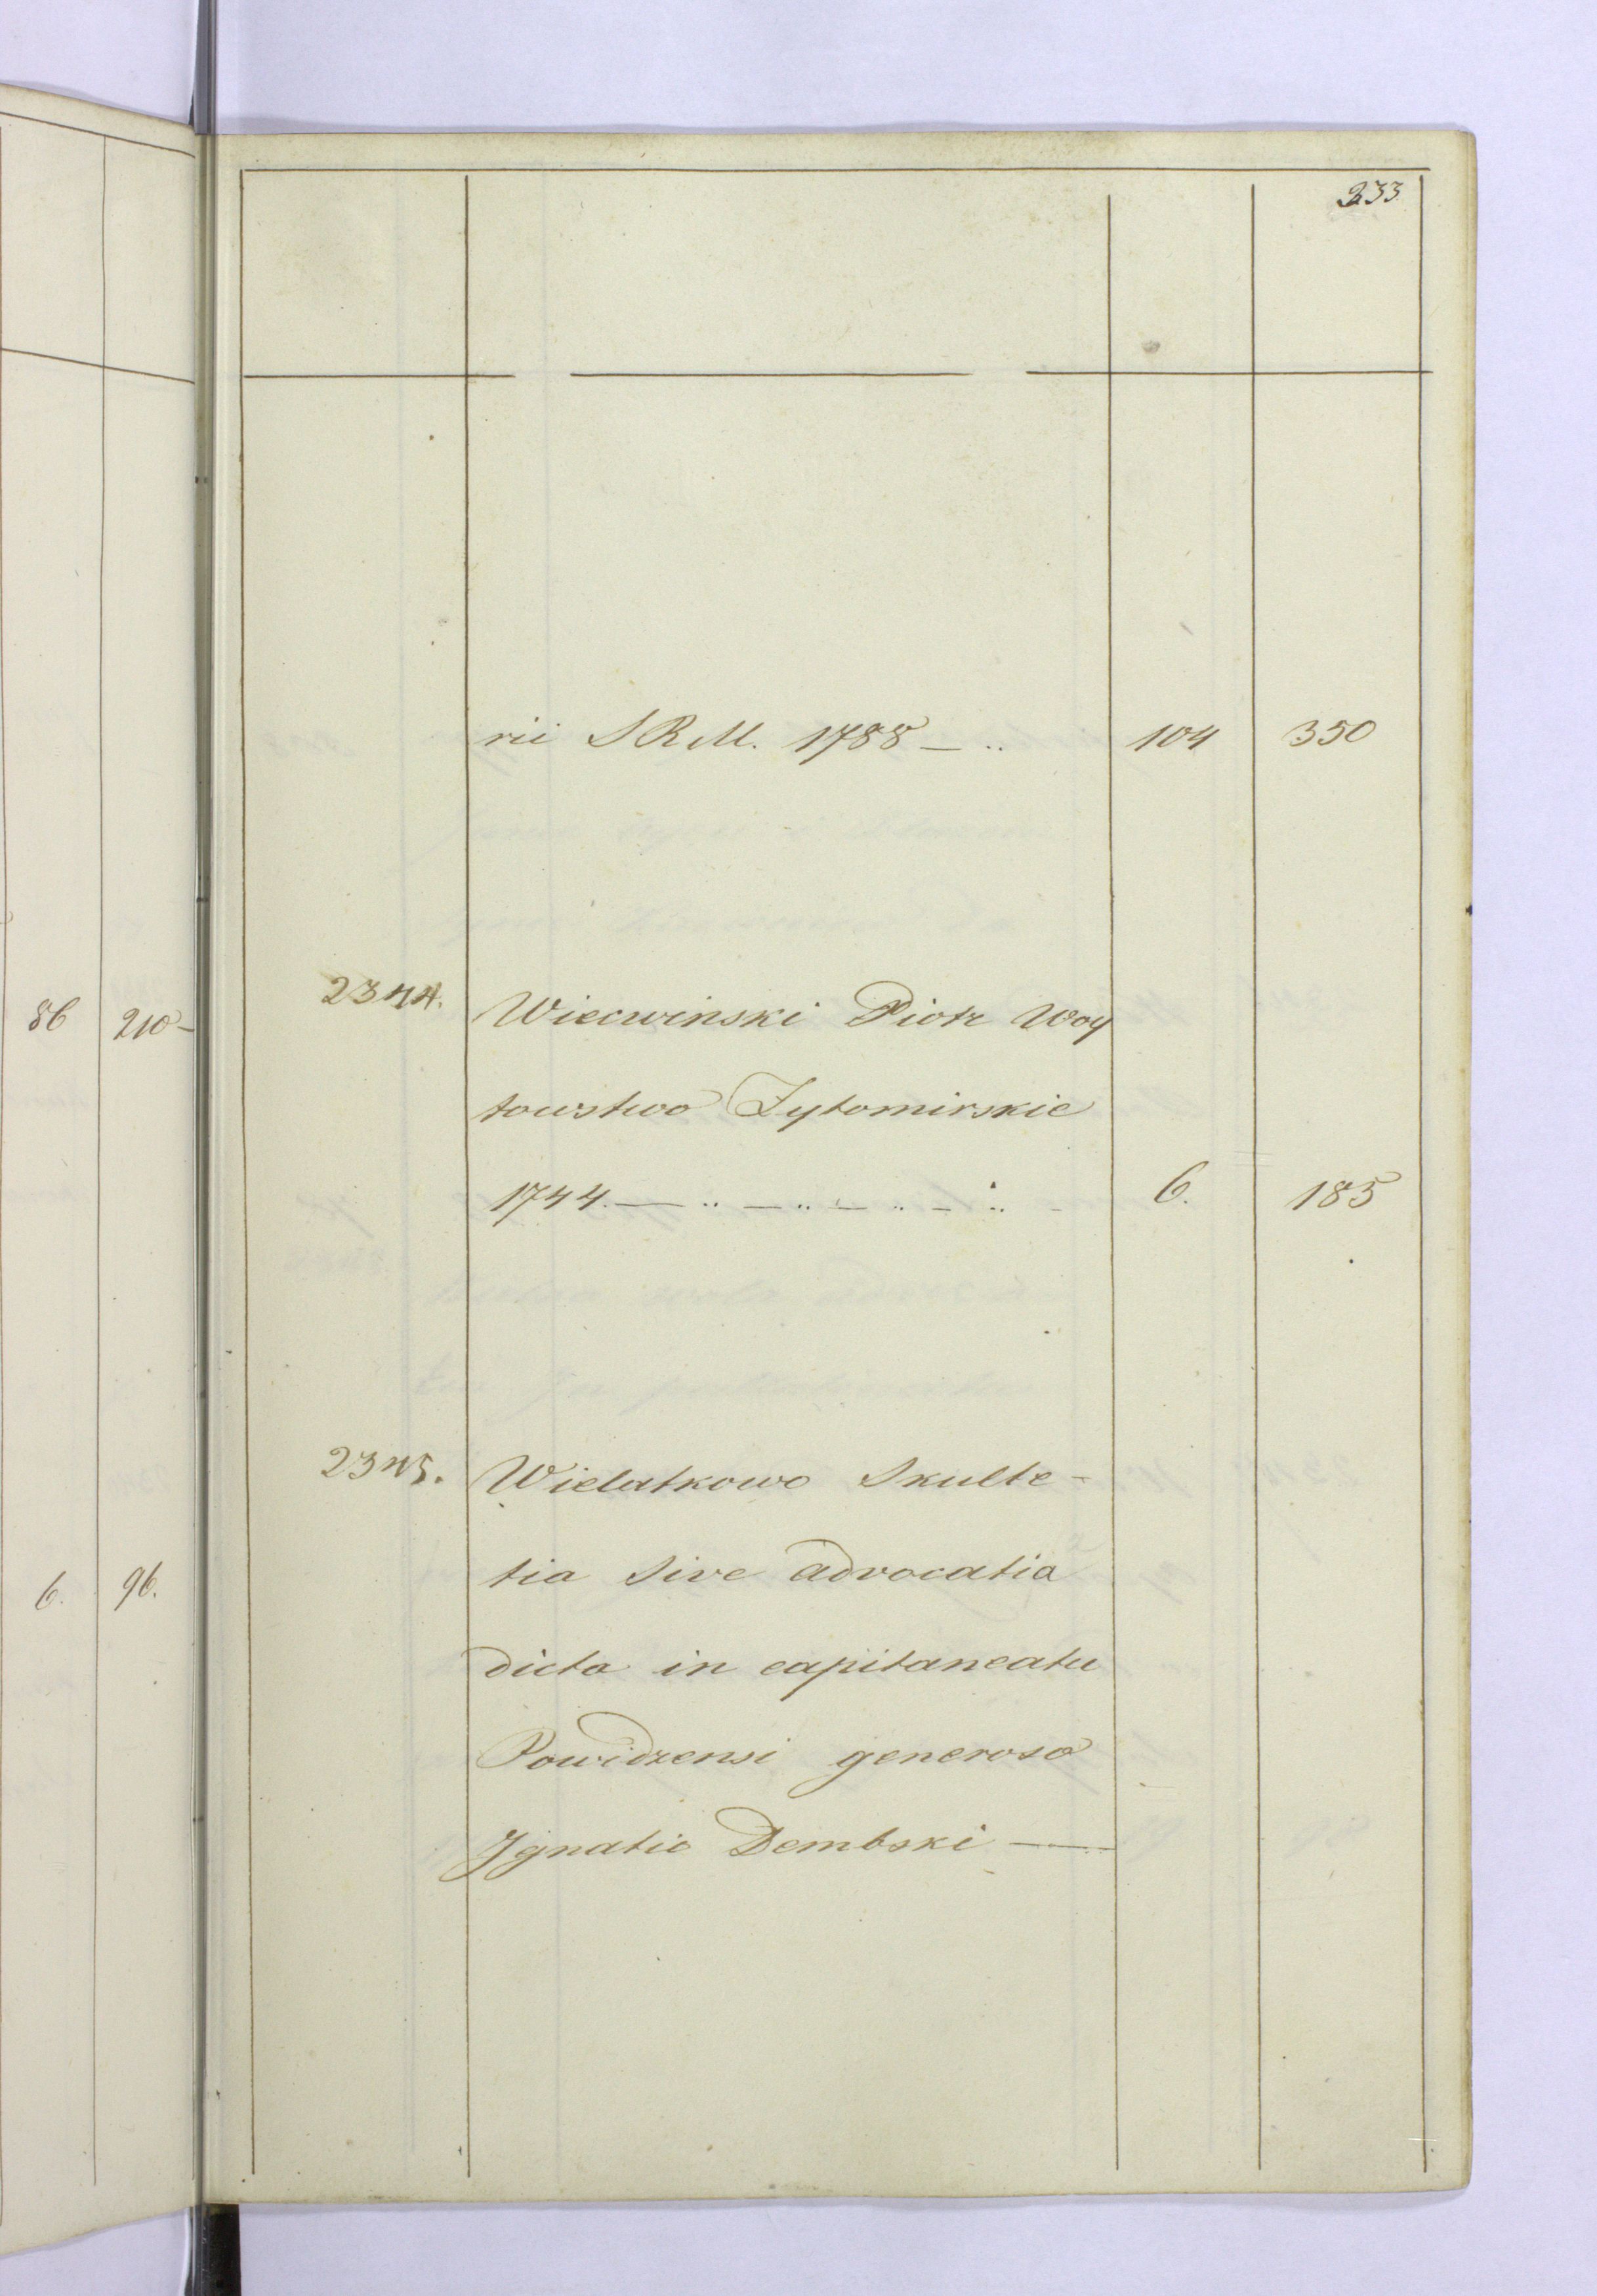 333
rii S R M. 1788 — .. 104 350
2344. Wiecwinski Piotr Woy
towstwo Żytomirskie
1744. — .. — .. — .. — .. 6. 185
2345. Wielatkowo Skulte-
tia Sive advocatia
dicta in capitaneatu
Powidzensi generoso
Ignatio Dembski —
86 210-
6. 96.